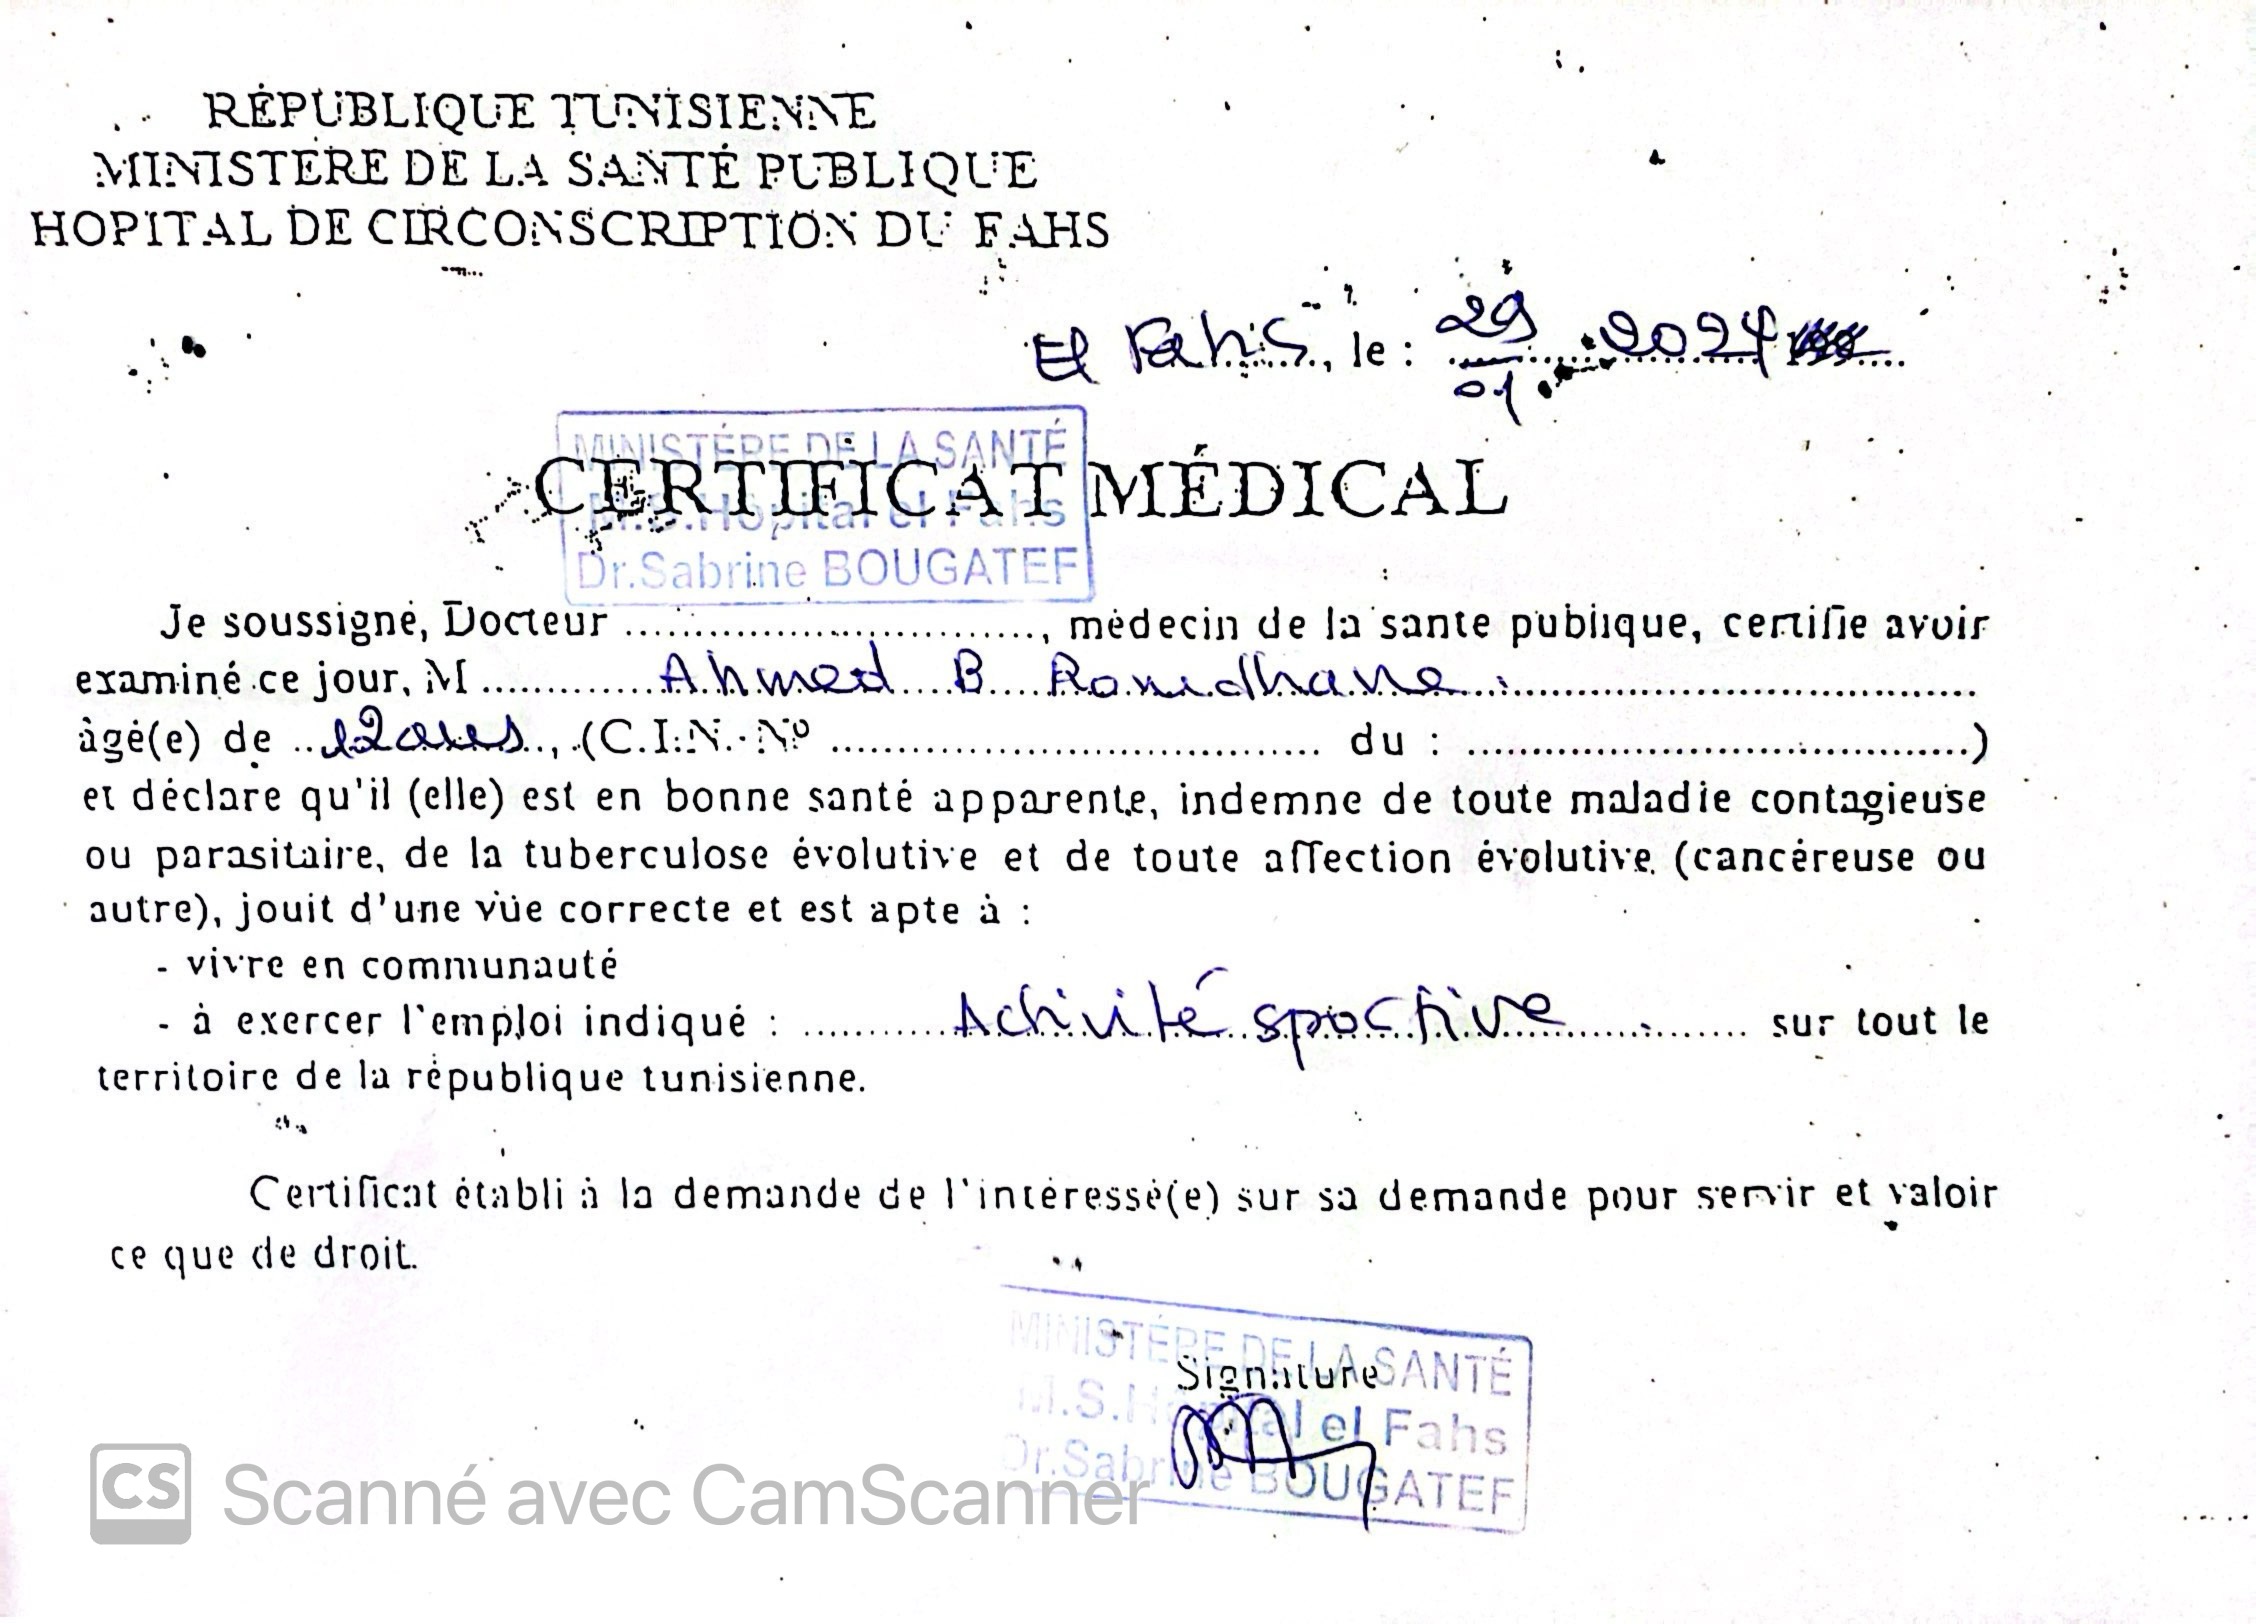 RÉPUBLIQUE TUNISIENNE
MINISTERE DE LA SANTÉ PUBLIQUE
HOPITAL DE CIRCONSCRIPTION DU FAHS
El Fahs, le : 29 01 2024
MINISTÉRE DE LA SANTÉ
M.S.Hopital el Fahs
Dr.Sabrine BOUGATEF
CERTIFICAT MÉDICAL
Je soussigné, Docteur ..............................., médecin de la sante publique, certifie avoir
examiné ce jour, M ............. Ahmed B Romdhane ...............................
âgé(e) de .. 12 ans .., (C.I.N. Nº .................................... du : .....................................)
et déclare qu'il (elle) est en bonne santé apparente, indemne de toute maladie contagieuse
ou parasitaire, de la tuberculose évolutive et de toute affection évolutive (cancéreuse ou
autre), jouit d'une vue correcte et est apte à :
- vivre en communauté
- à exercer l'emploi indiqué : ........... Activité sportive ............. sur tout le
territoire de la république tunisienne.
Certificat établi à la demande de l'intéressé(e) sur sa demande pour servir et valoir
ce que de droit.
Signature
MINISTÉRE DE LA SANTÉ
M.S.Hopital el Fahs
Dr.Sabrine BOUGATEF
CS Scanné avec CamScanner